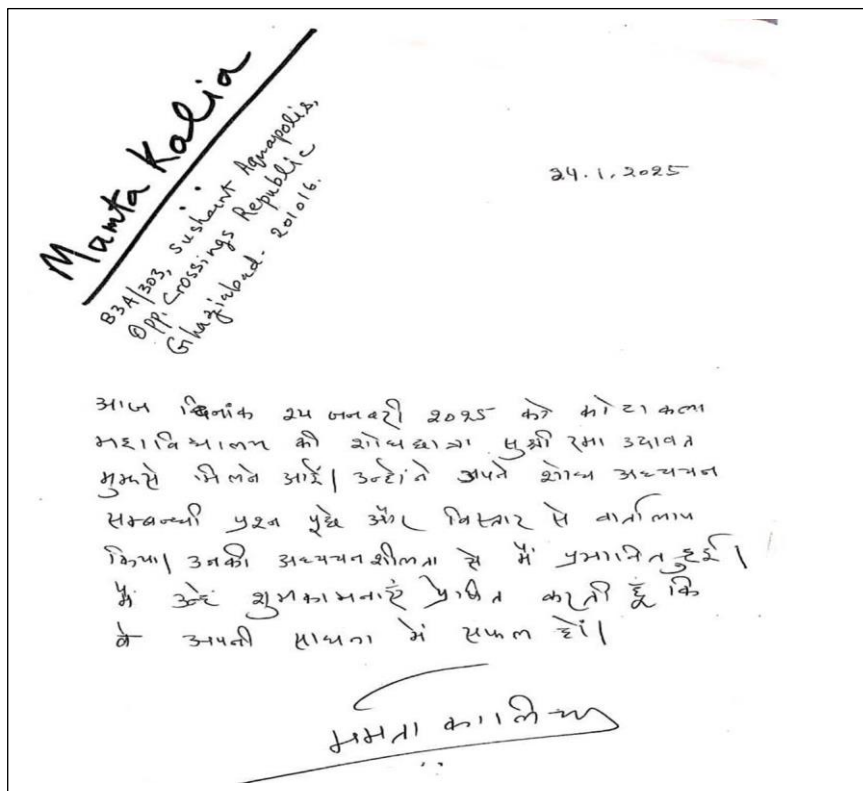 Mamta Kalia
B3A/303, Sushant Aquapolis,
Opp. Crossings Republic
Ghaziabad - 201016.
24.1.2025
आज दिनांक 24 जनवरी 2025 को कोटा कला
महाविद्यालय की शोधछात्रा सुश्री रमा उदावत
मुझसे मिलने आईं। उन्होंने अपने शोध अध्ययन
सम्बन्धी प्रश्न पूछे और विस्तार से वार्तालाप
किया। उनकी अध्ययनशीलता से मैं प्रभावित हुई।
मैं उन्हें शुभकामनाएं प्रेषित करती हूँ कि
वे अपनी साधना में सफल हों।
ममता कालिया